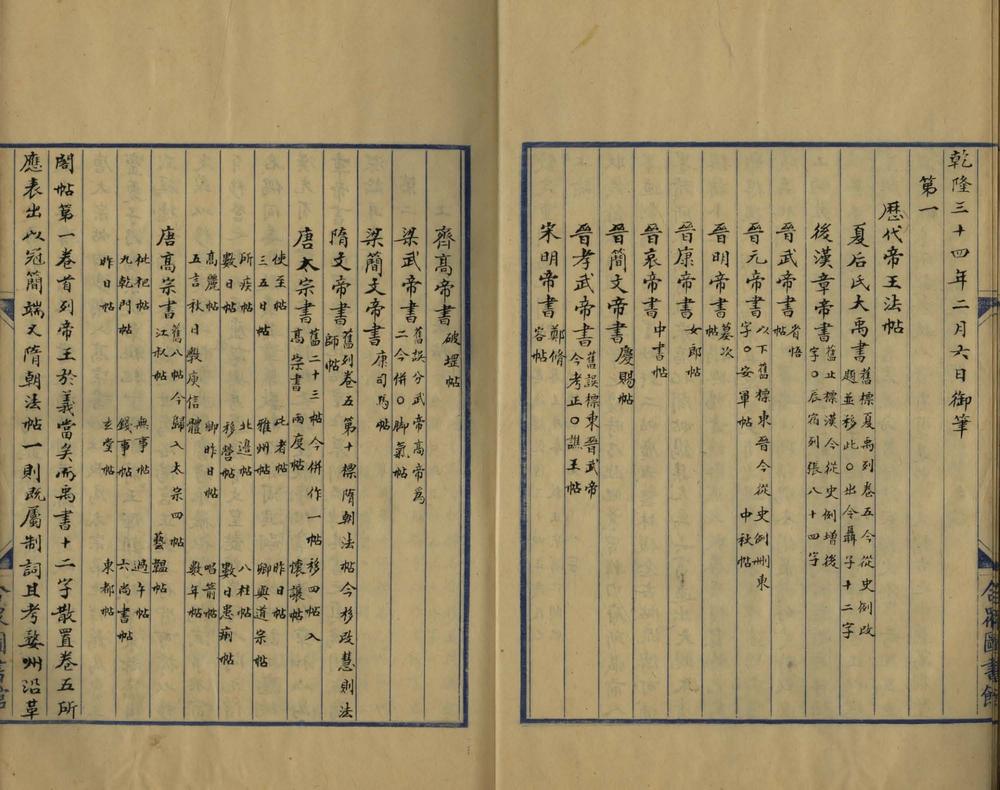 乾隆三十四年二月六日御筆
第一
歷代帝王法帖
夏后氏大禹書舊標夏禹列卷五今從史例改
題並移此○出令聶子十二字
後漢章帝書舊止標漢今從史例增後
字○辰宿列張八十四字
晉武帝書省啓
帖
晉元帝書以下舊標東晉今從史例刪東
字○安軍帖 中秋帖
晉明帝書墓次
帖
晉康帝書女郎
帖
晉哀帝書中書帖
晉簡文帝書慶賜帖
晉孝武帝書舊誤標東晉武帝
今考正○譙王帖
宋明帝書鄭脩
容帖
齊高帝書破堽帖
梁武帝書舊誤分武帝高帝為
二今併○脚氣帖
梁簡文帝書康司馬帖
隋文帝書舊列卷五第十標隋朝法帖今移改慧則法
師帖
唐太宗書舊二十三帖今併作一帖移四帖入
高宗書 兩度帖 懷讓帖
使至帖 此者帖 昨日帖
三五日帖 雅州帖 卿與道宗帖
所疾帖 北邊帖 八柱帖
數日帖 移營帖 數日患痢帖
高麗帖 卿昨日帖 唱箭帖
五言秋日斆庾信體 數年帖
唐高宗書舊八帖今歸入太宗四帖
江叔帖 藝韞帖
枇杷帖 無事帖 過午帖
九乾門帖 錢事帖 六尚書帖
昨日帖 玄堂帖 東都帖
閣帖第一卷首列帝王於義當矣而禹書十二字散置卷五所
應表出以冠簡端又隋朝法帖一則既屬制詞且考婺州沿革
合眾圖書館
合眾圖書館